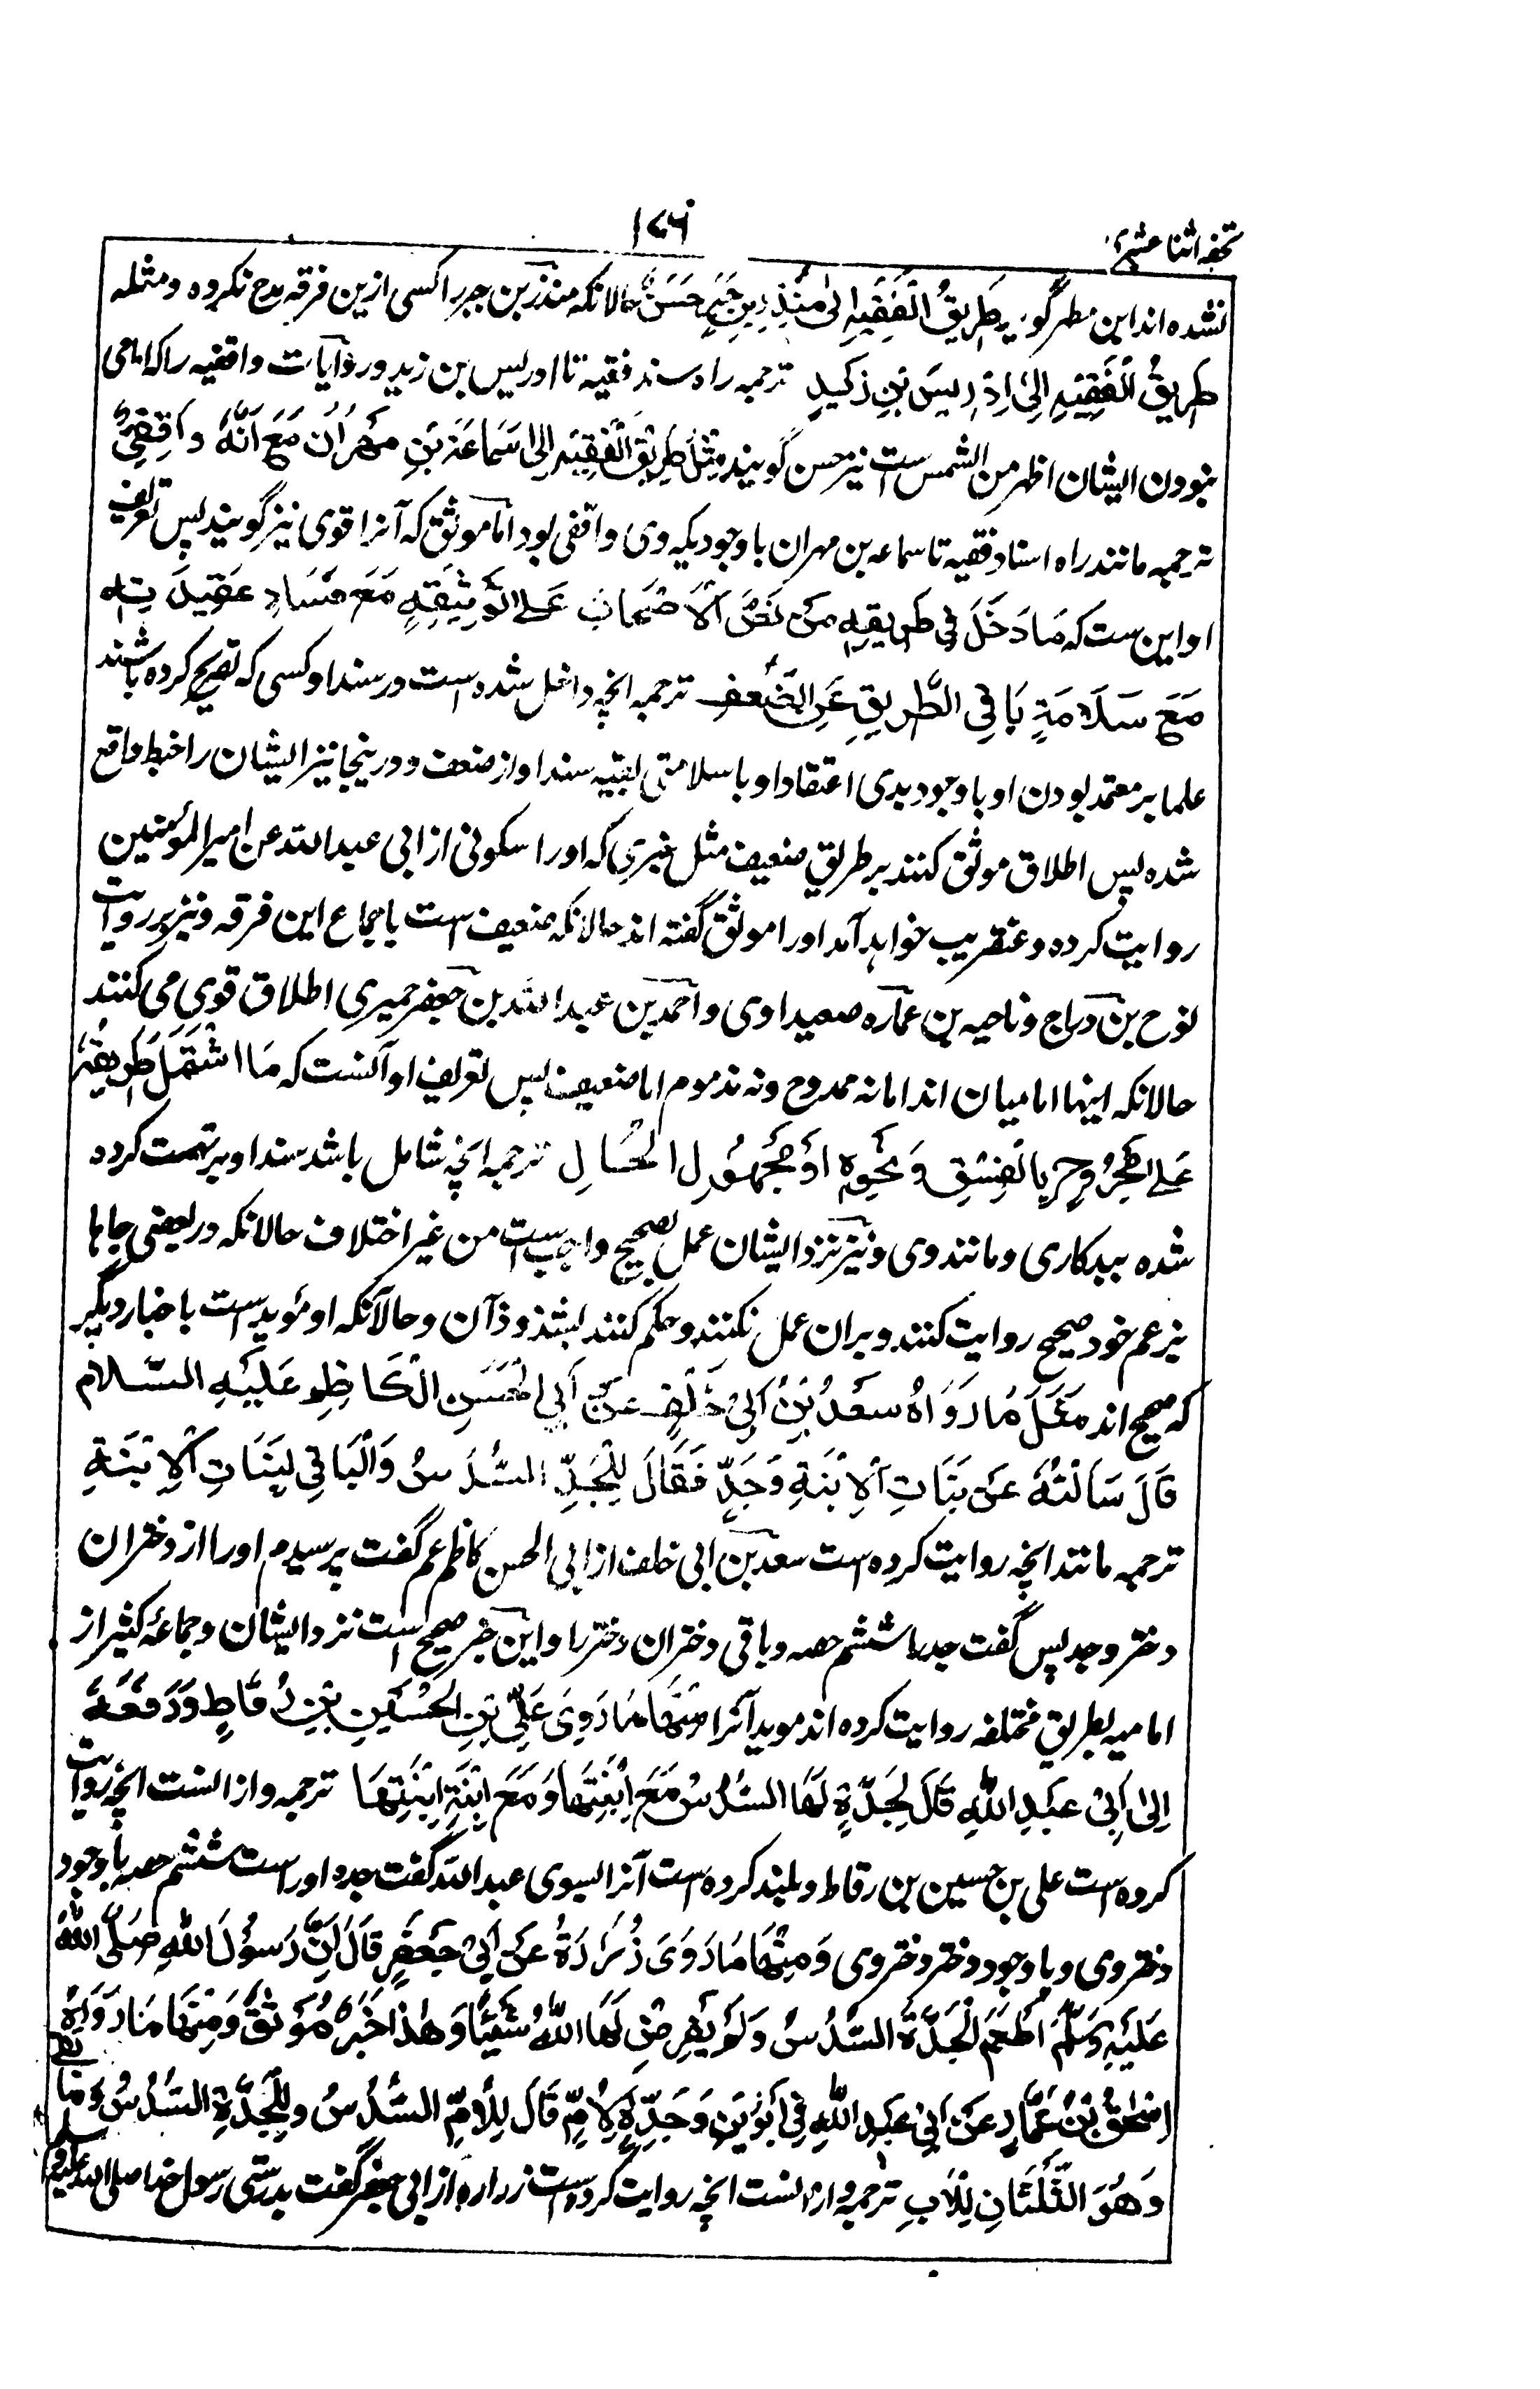 تحفه اثنا عشریه
۱۷۶
نشده اند این مطهر گوید طَرِیقُ الْفَقِیهِ اِلیٰ مُنْذِرِ بنِ جَبَرٍ حَسَنٌ حالانکه منذر بن جبر را کسی ازین فرقه مدح نکرده و مثله
طَرِیقُ الْفَقِیهِ اِلیٰ اِدْرِیسَ بْنِ زَیدٍ ترجمه راه سند فقیه تا ادریس بن زید و روایات واقفیه را که امامی
نبودن ایشان اظهر من الشمس است نیز حسن گویند مِثْلُ طَرِیقِ الْفَقِیهِ اِلیٰ سَمَاعَةَ بْنِ مِهْرَانَ مَعَ اَنَّهٗ وَاقِفِیٌّ
ترجمه مانند راه اسناد فقیه تا سماعه بن مهران با وجودیکه وی واقفی بود اما موثق که آنرا قوی نیز گویند پس تعریف
او این ست که مَا دَخَلَ فِی طَرِیقِهٖ مَنْ نَصَّ الْاَصْحَابُ عَلٰے تَوْثِیقِهٖ مَعَ فَسَادِ عَقِیدَتِهٖ
مَعَ سَلَامَةِ بَاقِی الطَّرِیقِ عَنِ الضَّعْفِ ترجمه انچه داخل شده است در سند او کسی که تصریح کرده باشند
علما بر معتمد بودن او با وجود بدی اعتقاد او با سلامتی بقیه سند او از ضعف و درینجا نیز ایشان را خبط واقع
شده پس اطلاق موثق کنند بر طریق ضعیف مثل خبری که او را سکونی از ابی عبد الله عن امیر المؤمنین
روایت کرده و عنقریب خواهد آمد او را موثق گفته اند حالانکه ضعیف است باجماع این فرقه و نیز بر روایت
نوح بن دراج و ناحیه بن عماره صیداوی و احمد بن عبد الله بن جعفر حمیری اطلاق قوی می کنند
حالانکه اینها امامیان اند اما نه ممدوح و نه مذموم اما ضعیف پس تعریف او آنست که مَا اشْتَمَلَ طَرِیقُهٗ
عَلٰے مَجْرُوحٍ بِالْفِسْقِ وَنَحْوِهٖ اَوْ مَجْهُولِ الْحَالِ ترجمه انچه شامل باشد سند او بر تهمت کرده
شده ببدکاری و مانند وی و نیز نزد ایشان عمل بصحیح واجب است من غیر اختلاف حالانکه در بعضی جاها
بزعم خود صحیح روایت کنند و بران عمل نکنند و حکم کنند بشذوذ آن و حالآنکه او مؤید است باخبار دیگر
که صحیح اند مِثْلُ مَا رَوَاهُ سَعْدُ بْنُ اَبِیْ خَلَفٍ عَنْ اَبِی الْحَسَنِ الْکَاظِمِ عَلَیْهِ السَّلَام
قَالَ سَاَلْتُهٗ عَنْ بَنَاتِ الْاِبْنَةِ وَجَدٍّ فَقَالَ لِلْجَدِّ السُّدُسُ وَالْبَاقِی لِبَنَاتِ الْاِبْنَةِ
ترجمه مانند انچه روایت کرده ست سعد بن ابی خلف از ابی الحسن کاظم عم گفت پرسیدم او را از دختران
دختر و جد پس گفت جد را ششم حصه و باقی دختران دختر را و این خبر صحیح است نزد ایشان و جماعهٔ کثیر از
امامیه بطریق مختلفه روایت کرده اند موید آنرا مِنْهَا مَا رَوَی عَلِیُّ بْنُ الْحُسَیْنِ بْنِ رُقَاطٍ وَرَفَعَهٗ
اِلیٰ اَبِیْ عَبْدِ اللّٰهِ قَالَ لِجَدَّةٍ لَهَا السُّدُسُ مَعَ اِبْنَتِهَا وَمَعَ اِبْنَةِ اِبْنَتِهَا ترجمه و از انست انچه روایت
کرده است علی بن حسین بن رقاط و بلند کرده ست آنرا بسوی عبد الله گفت جده او راست ششم حصه با وجود
دختر وی و با وجود دختر دختر وی وَمِنْهَا مَا رَوَیَ زُرَارَةُ عَنْ اَبِیْ جَعْفَرٍ قَالَ اِنَّ رَسُوْلَ اللّٰهِ صَلَّی اللّٰهُ
عَلَیْهِ وَسَلَّمَ اَطْعَمَ الْجَدَّةَ السُّدُسَ وَلَمْ یَفْرِضْ لَهَا اللّٰهُ شَیْئًا وَهٰذَا خَبَرٌ مُوَثَّقٌ وَمِنْهَا مَا رَوَاهُ
اِسْحٰقُ بْنُ عَمَّارٍ عَنْ اَبِیْ عَبْدِ اللّٰهِ فِی اَبَوَیْنِ وَجَدَّةٍ لِاُمٍّ قَالَ لِلْاُمِّ السُّدُسُ وَلِلْجَدَّةِ السُّدُسُ وَمَا بَقِیَ
وَهُوَ الثُّلُثَانِ لِلْاَبِ ترجمه و ازانست انچه روایت کرده است زراره از ابی جعفر گفت بدرستی رسول خدا صلی الله علیه وسلم